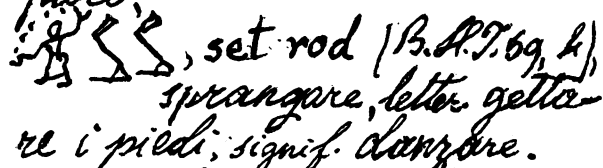 , set rod (B.H.T. 69, h),
sprangare, letter. getta-
re i piedi; signif. danzare.